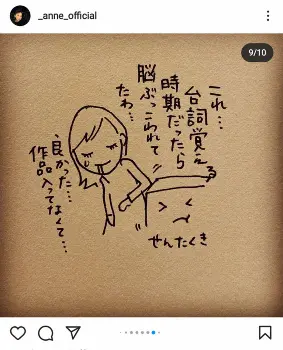 _anne_official
9/10
これ…
台詞覚える
時期だったら
脳ぶっこわれて
たわ…
良かった……
作品入ってなくて…
せんたくき